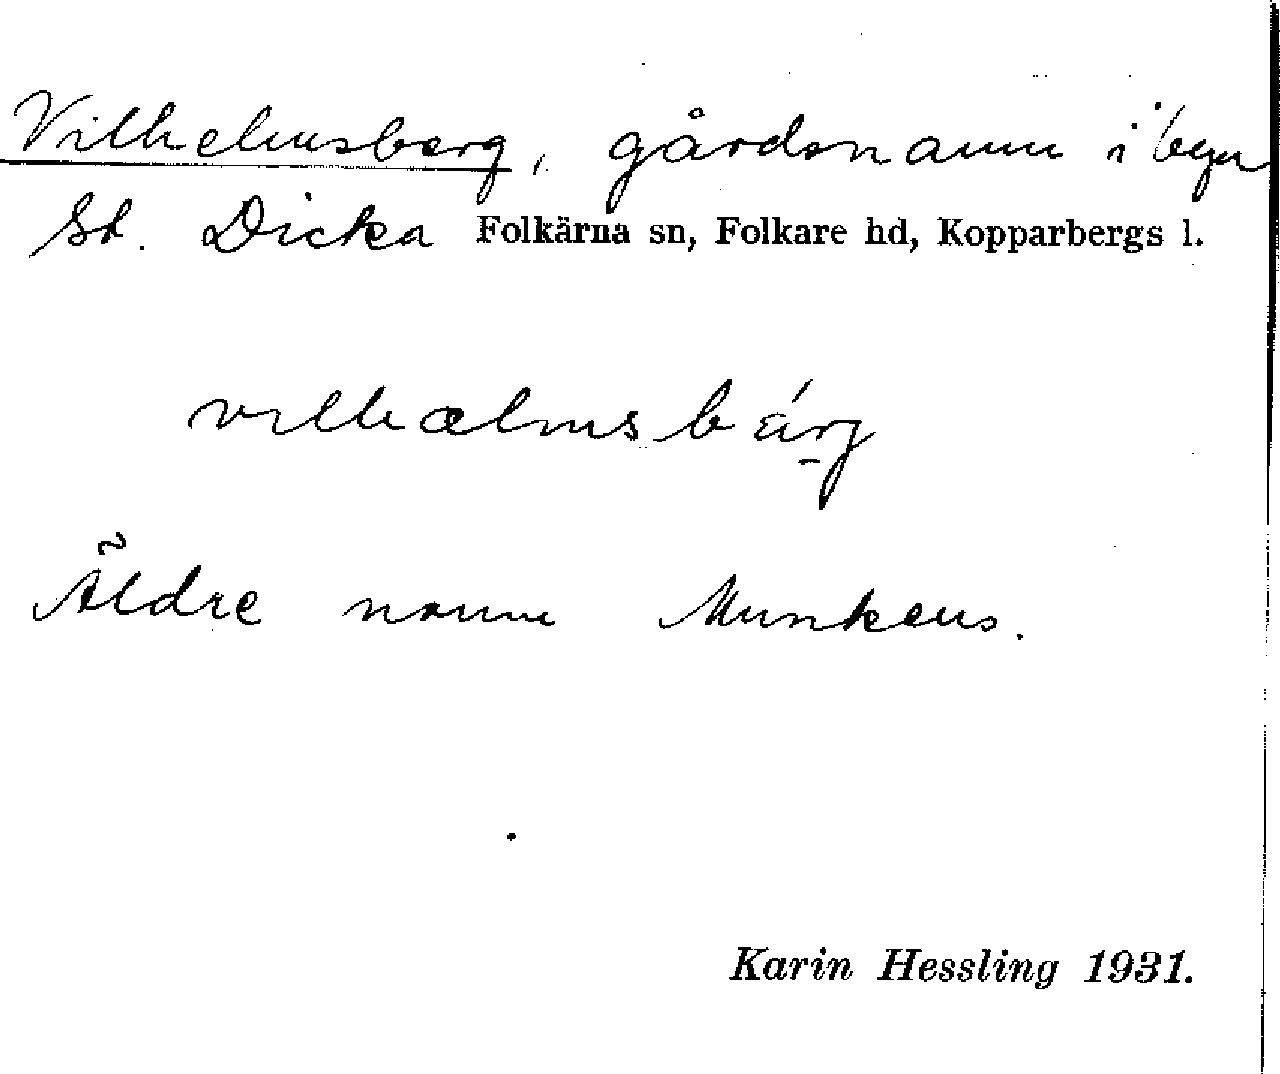 Vilhelmsberg, gårdsnamn i byn
St. Dicka Folkärna sn, Folkare hd, Kopparbergs l.
vilhælmsbárj
Äldre namn Munkens.
Karin Hessling 1931.